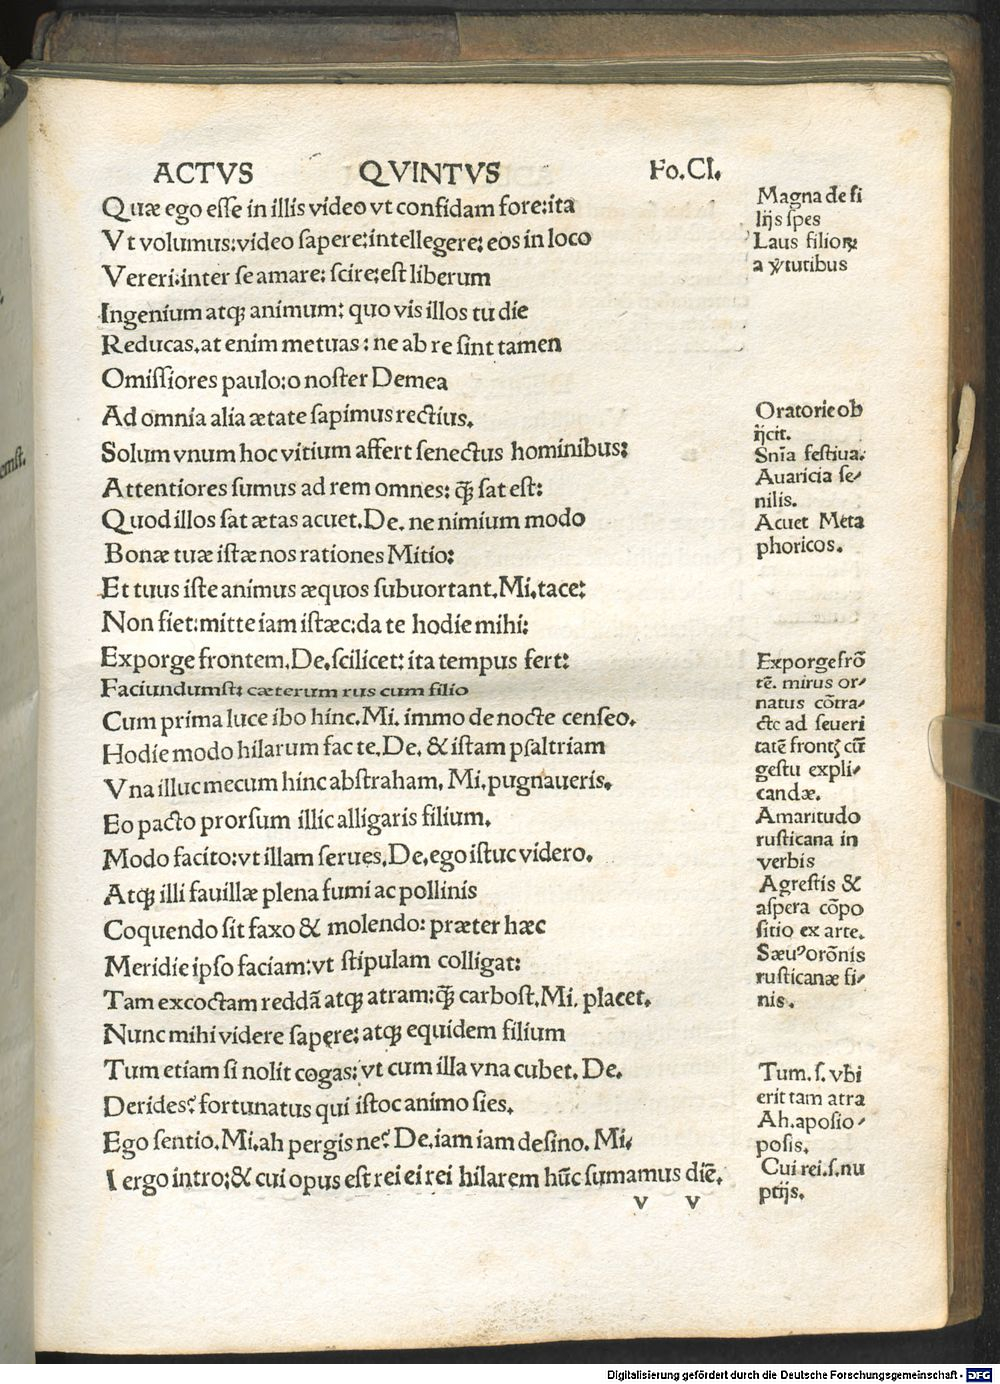 ACTVS QVINTVS Fo.CI.
Quæ ego eſſe in illis video vt confidam fore:ita
Vt volumus:video ſapere:intellegere: eos in loco
Vereri:inter ſe amare: ſcire:eſt liberum
Ingenium atqꝫ animum: quo vis illos tu die
Reducas.at enim metuas: ne ab re ſint tamen
Omiſſiores paulo:o noſter Demea
Ad omnia alia ætate ſapimus rectius.
Solum vnum hoc vitium affert ſenectus hominibus:
Attentiores ſumus ad rem omnes: ꝙ̃ ſat eſt:
Quod illos ſat ætas acuet.De. ne nimium modo
Bonæ tuæ iſtæ nos rationes Mitio:
Et tuus iſte animus æquos ſubuortant.Mi.tace:
Non fiet:mitte iam iſtæc:da te hodie mihi:
Exporge frontem.De.ſcilicet: ita tempus fert:
Faciundumſt: cæterum rus cum filio
Cum prima luce ibo hinc.Mi. immo de nocte cenſeo.
Hodie modo hilarum fac te.De. & iſtam pſaltriam
Vna illuc mecum hinc abſtraham. Mi.pugnaueris.
Eo pacto prorſum illic alligaris filium.
Modo facito:vt illam ſerues.De.ego iſtuc videro.
Atqꝫ illi fauillæ plena fumi ac pollinis
Coquendo ſit faxo & molendo: præter hæc
Meridie ipſo faciam:vt ſtipulam colligat:
Tam excoctam reddã atqꝫ atram:ꝙ̃ carboſt.Mi. placet.
Nunc mihi videre ſapere: atqꝫ equidem filium
Tum etiam ſi nolit cogas: vt cum illa vna cubet. De.
Derides? fortunatus qui iſtoc animo ſies.
Ego ſentio.Mi.ah pergis ne? De.iam iam deſino. Mi.
I ergo intro:& cui opus eſt rei ei rei hilarem hũc ſumamus diẽ.
v v
Magna de fi
lijs ſpes
Laus filioꝝ
a v̓tutibus
Oratorie ob
ijcit.
Snĩa feſtiua.
Auaricia ſe⸗
nilis.
Acuet Meta
phoricos.
Exporge frõ
tẽ. mirus or⸗
natus cõtra⸗
cte ad ſeueri
tatẽ frontꝭ cũ
geſtu expli⸗
candæ.
Amaritudo
ruſticana in
verbis
Agreſtis &
aſpera cõpo
ſitio ex arte.
Sæuꝰ orõnis
ruſticanæ fi⸗
nis.
Tum.ſ.vbi
erit tam atra
Ah.apoſio⸗
poſis.
Cui rei.ſ.nu
ptijs.
emſt.
Digitalisierung gefördert durch die Deutsche Forschungsgemeinschaft - DFG